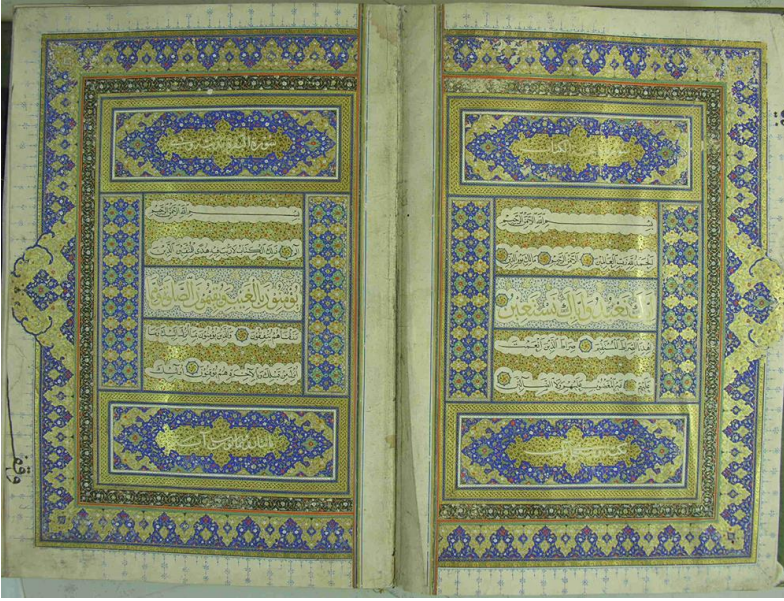 الكتاب
بسم الله الرحمن الرحيم
الحمد لله رب العالمين الرحمن الرحيم مالك يوم الدين
اياك نعبد واياك نستعين
اهدنا الصراط المستقيم صراط الذين انعمت
عليهم غير المغضوب عليهم ولا الضالين
سورة البقرة
بسم الله الرحمن الرحيم
الم ذلك الكتاب لا ريب فيه هدى للمتقين الذين
يؤمنون بالغيب ويقيمون الصلوة
ومما رزقناهم ينفقون والذين يؤمنون بما انزل اليك وما
انزل من قبلك وبالاخرة هم يوقنون اولئك
وقف